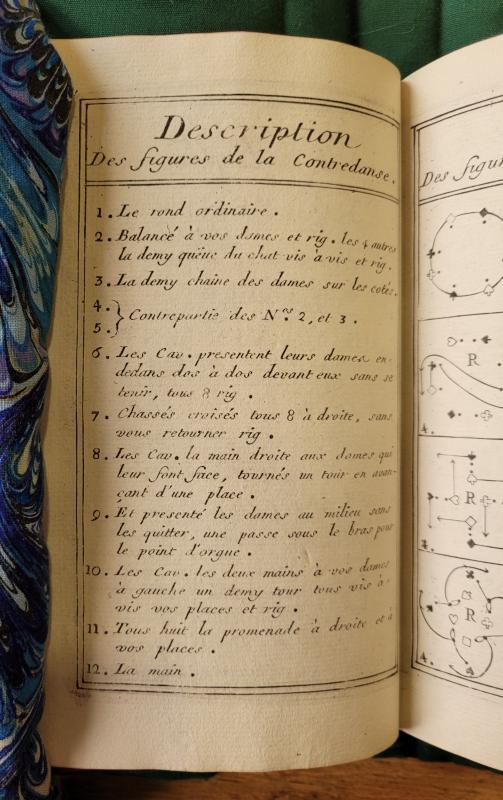 Description
Des figures de la Contredanse.
1. Le rond ordinaire.
2. Balancé à vos dames et rig. les 4 autres
la demy queüe du chat vis à vis et rig.
3. La demy chaine des dames sur les cotés.
4.
5. } Contrepartie des Nos. 2, et 3.
6. Les Cav. presentent leurs dames en-
dedans dos à dos devant eux sans se
tenir, tous 8 rig.
7. Chassés croisés tous 8 à droite, sans
vous retourner rig.
8. Les Cav. la main droite aux dames qui
leur font face, tournés un tour en avan-
çant d'une place.
9. Et presenté les dames au milieu sans
les quitter, une passe sous le bras pour
le point d'orgue.
10. Les Cav. les deux mains à vos dames
à gauche un demy tour tous vis à
vis vos places et rig.
11. Tous huit la promenade à droite et à
vos places.
12. La main.
Des figur
R
4.
R
4.
R
4.